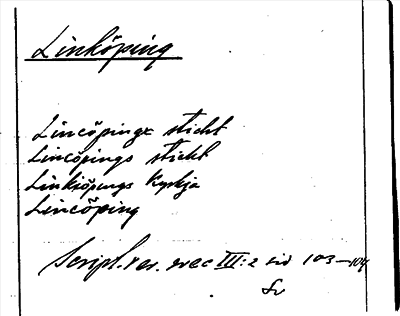 Linköping
Lincöpingx sticht
Lincöpings sticht
Linkiöpings Kyrkja
Lincöping
Script. rer. svec III:2 sid 103-104
Sv